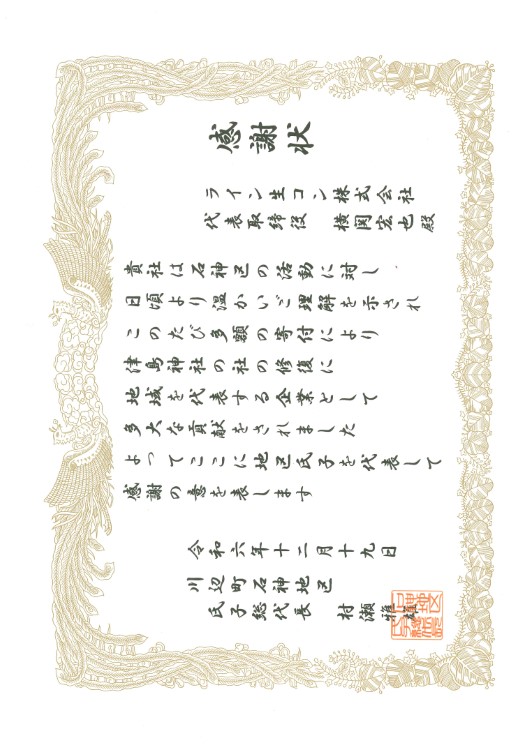 感謝状
ライン生コン株式会社
代表取締役 横関宏也殿
貴社は石神区の活動に対し
日頃より温かいご理解を示され
このたび多額の寄付により
津島神社の社の修復に
地域を代表する企業として
多大な貢献をされました
よってここに地区氏子を代表して
感謝の意を表します
令和六年十二月十九日
川辺町石神地区
氏子総代長 村瀬雅雄